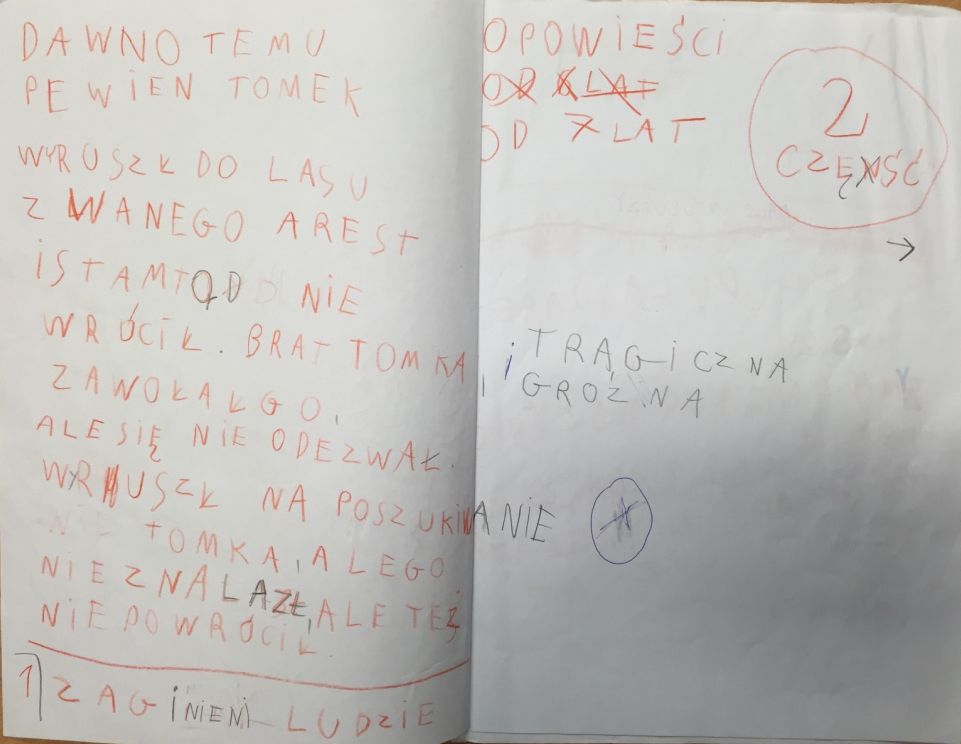 DAWNO TEMU
PEWIEN TOMEK
WYRUSZŁ DO LASU
ZWANEGO AREST
I STAMTĄD NIE
WRÓCIŁ. BRAT TOMKA
ZAWOŁAŁ GO,
ALE SIĘ NIE ODEZWAŁ.
WYRUSZŁ NA POSZUKIWANIE
TOMKA, ALE GO
NIE ZNALAZŁ, ALE TEŻ
NIE POWRÓCIŁ.
1 ZAGINIENI LUDZIE
OPOWIEŚCI
OD 7 LAT
2
CZĘŚĆ
→
I TRAGICZNA
I GROŹNA